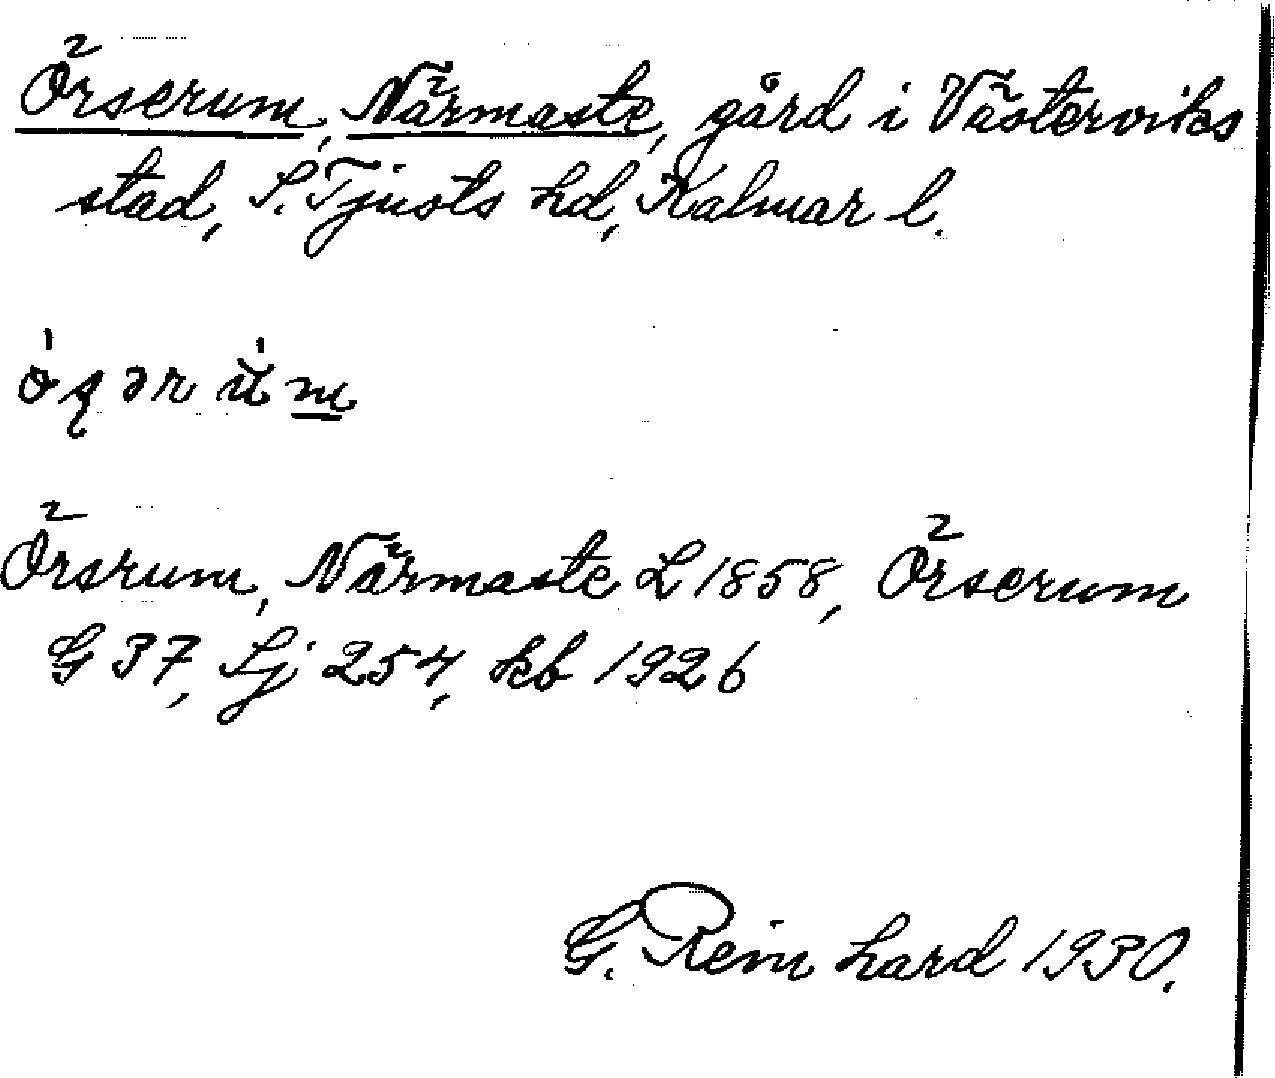 Örserum, Närmaste, gård i Västerviks
stad, S. Tjusts hd, Kalmar l.
Örsrum, Närmaste L 1858, Örserum
G 37, Lj 254, kb 1926
G. Reinhard 1930.